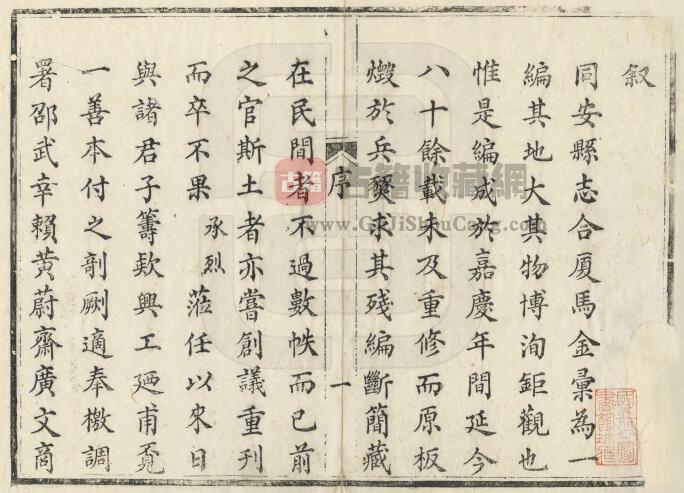 叙
同安縣志合厦馬金彙為一
編其地大其物博洵鉅觀也
惟是編成於嘉慶年間延今
八十餘載未及重修而原板
燬於兵燹求其殘編斷簡藏
序 一
在民間者不過數帙而已前
之官斯土者亦嘗創議重刊
而卒不果承烈蒞任以來日
與諸君子籌欵興工廼甫覔
一善本付之剞劂適奉檄調
署邵武幸賴黃蔚齋廣文商
古籍
古籍收藏網
www.GuJiShouCang.com